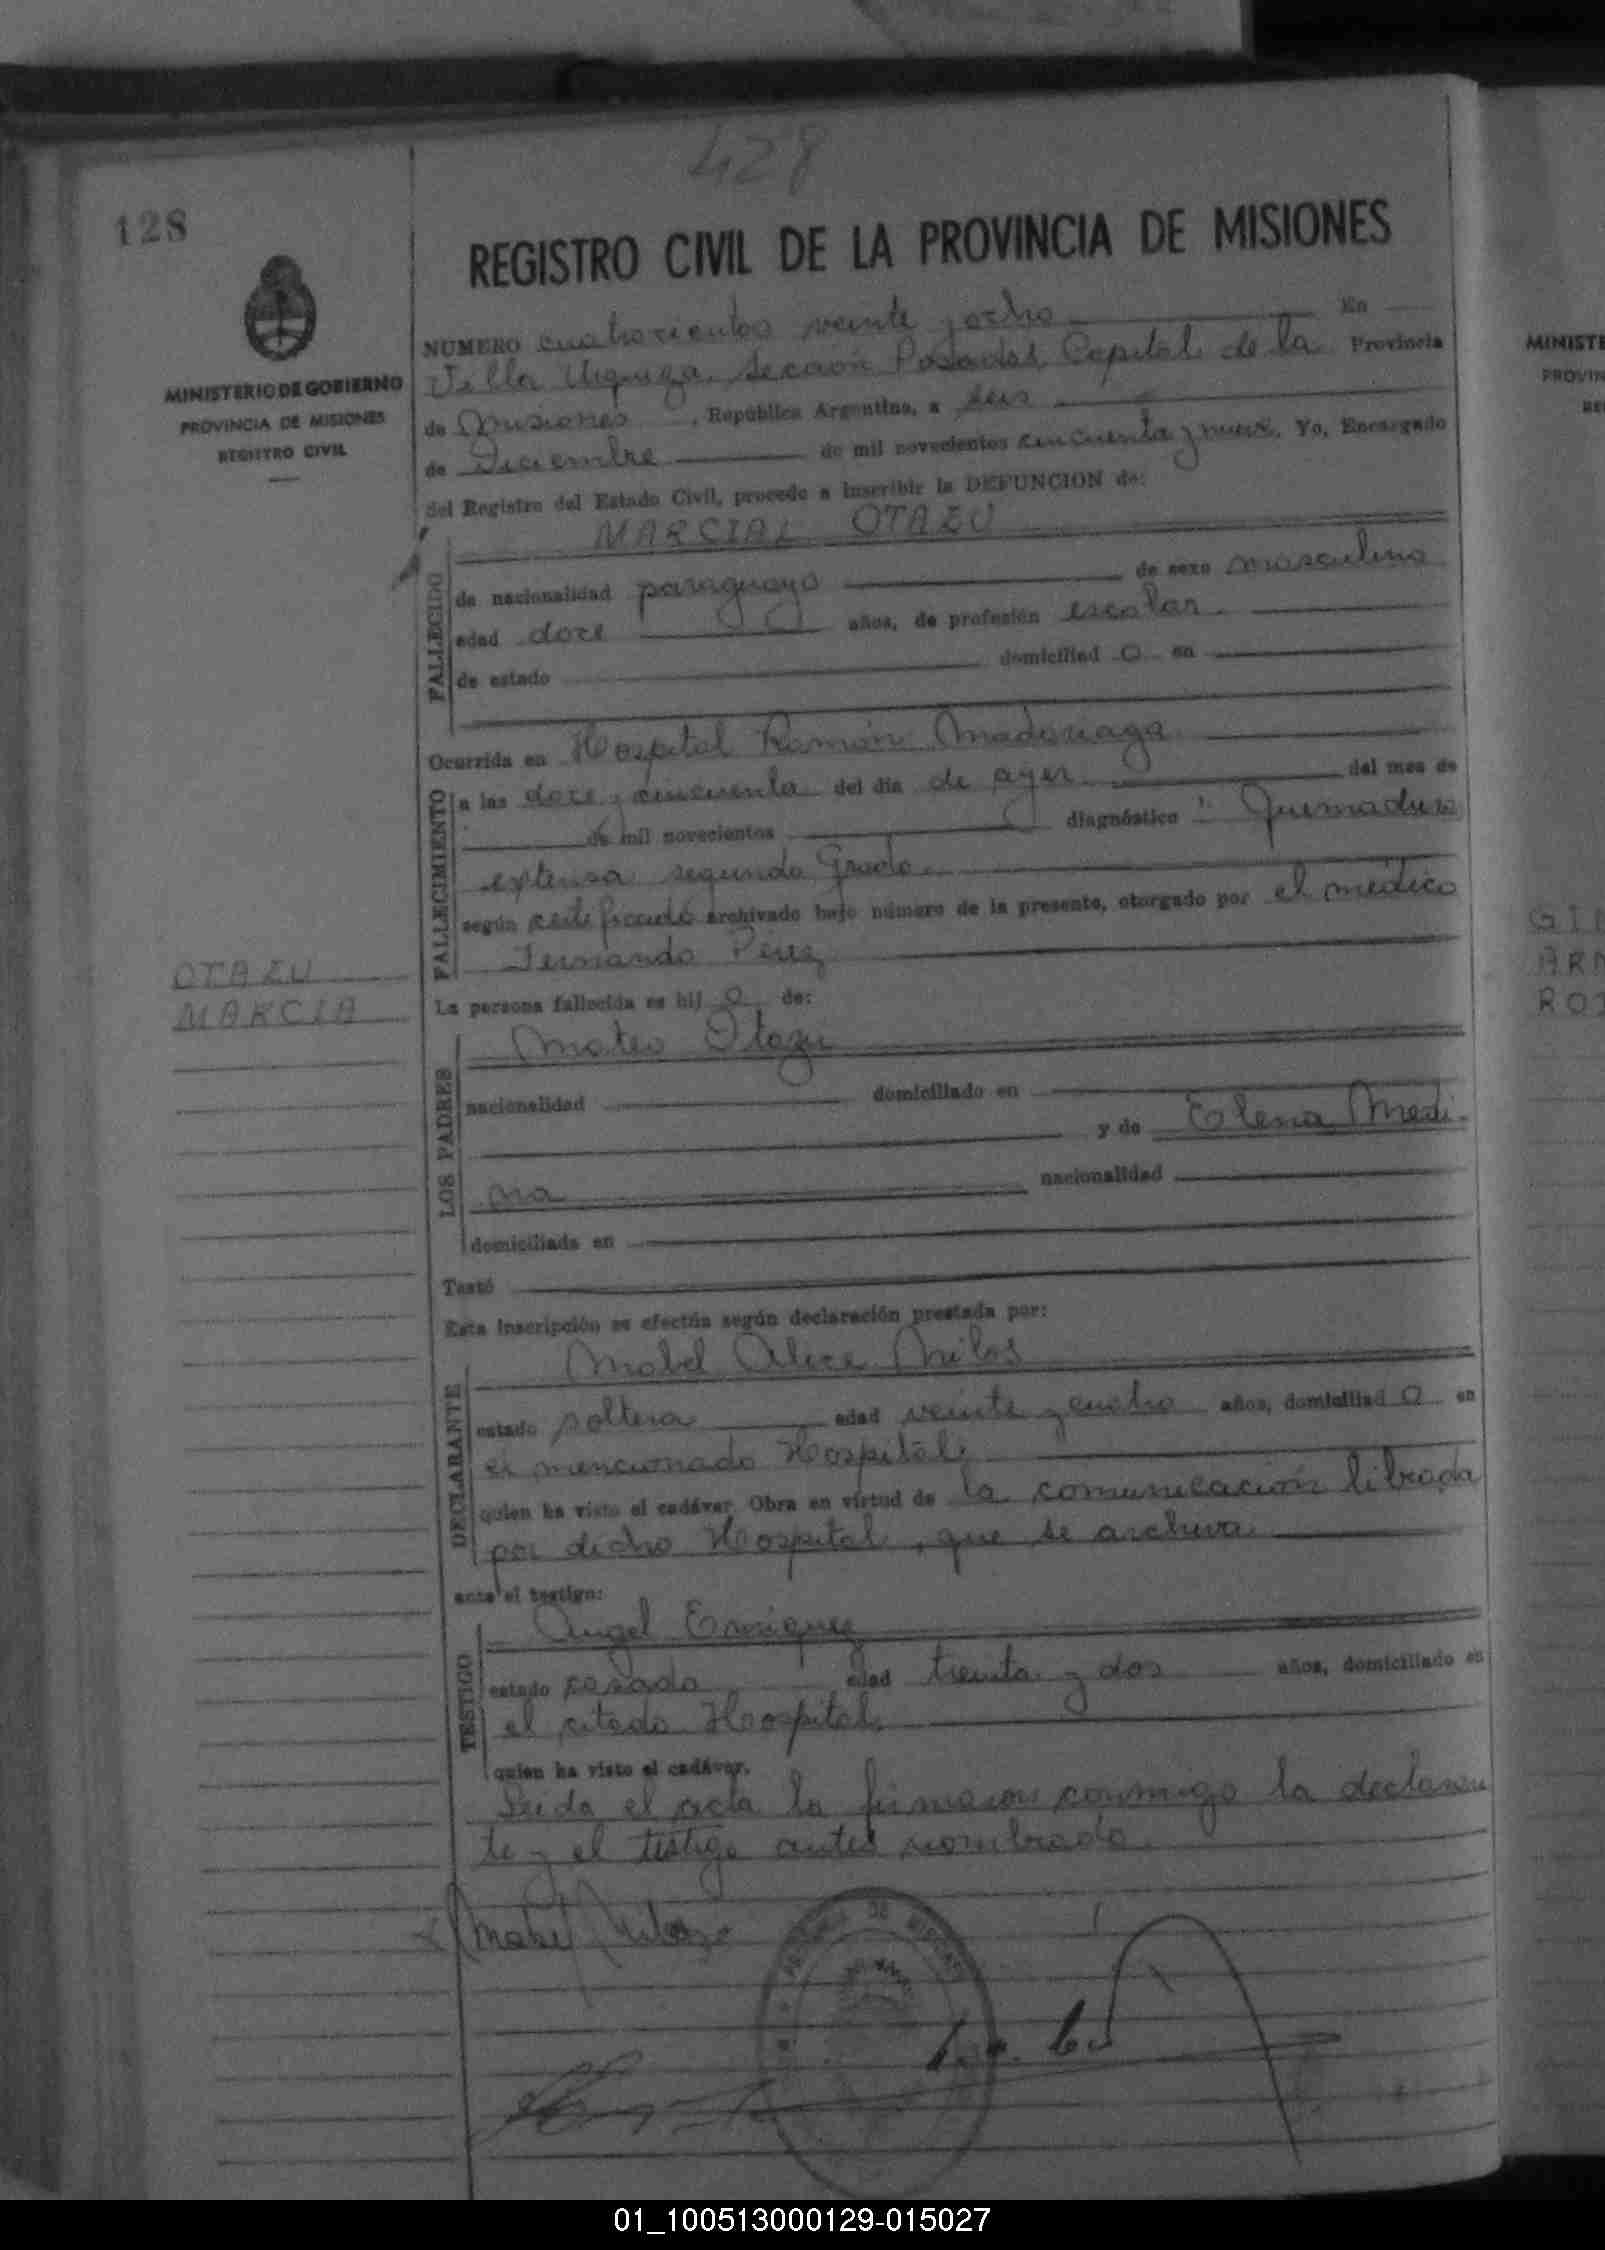 428
128
REGISTRO CIVIL DE LA PROVINCIA DE MISIONES
MINISTERIO DE GOBIERNO
PROVINCIA DE MISIONES
REGISTRO CIVIL
NUMERO cuatrocientos veinte y ocho En
Villa Urquiza, Sección Posadas Capital de la Provincia
de Misiones, República Argentina, a seis
de Diciembre de mil novecientos cincuenta y nueve, Yo, Encargado
del Registro del Estado Civil, procedo a inscribir la DEFUNCION de:
MARCIAL OTAZU
FALLECIDO
de nacionalidad paraguayo de sexo masculino
edad doce años, de profesión escolar
de estado domiciliad o en
Ocurrida en Hospital Ramón Madariaga
FALLECIMIENTO
a las doce y cincuenta del día de ayer del mes de
de mil novecientos diagnóstico: Quemadura
extensa segundo Grado
según certificado archivado bajo número de la presente, otorgado por el médico
Fernando Perez
OTAZU
MARCIA
La persona fallecida es hij o de:
LOS PADRES
Mateo Otazu
nacionalidad domiciliado en
y de Elena Medi-
na nacionalidad
domiciliada en
Testó
Esta inscripción se efectúa según declaración prestada por:
DECLARANTE
Mabel Alice Milos
estado soltera edad veinte y cuatro años, domiciliad o en
el mencionado Hospital,
quien ha visto el cadáver. Obra en virtud de la comunicación librada
por dicho Hospital, que se archiva
ante el testigo:
TESTIGO
Angel Enriquez
estado casado edad treinta y dos años, domiciliado en
el citado Hospital,
quien ha visto el cadáver.
Leida el acta la firmaron conmigo la declaran
te y el testigo antes nombrado.
Mabel
DE MISIONES
MINISTE
PROVIN
RE
GI
AR
RO
01_100513000129-015027